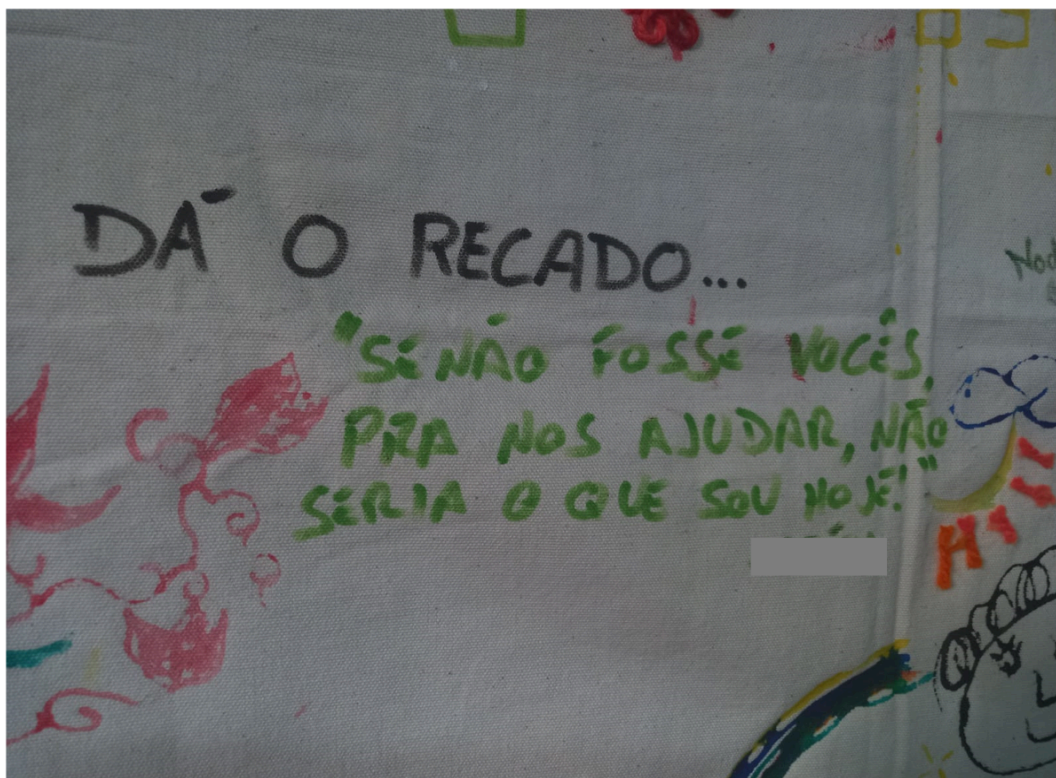 DÁ O RECADO...
"SE NÃO FOSSE VOCÊS,
PRA NOS AJUDAR, NÃO
SERIA O QUE SOU HOJE!"